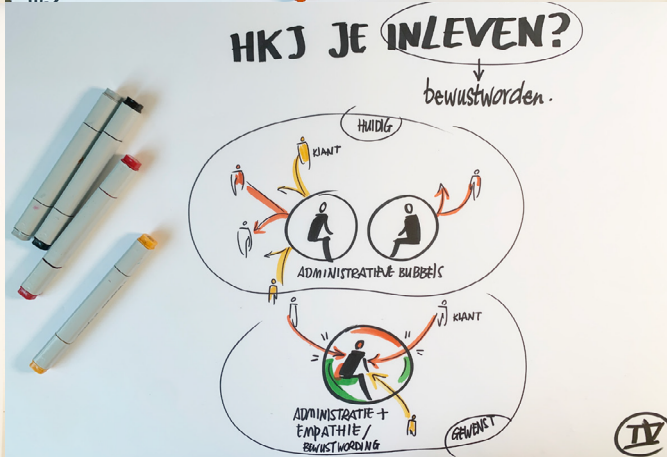 HKJ JE INLEVEN?
bewustworden.
HUIDIG
KLANT
ADMINISTRATIEVE BUBBELS
KLANT
ADMINISTRATIE +
EMPATHIE/
BEWUSTWORDING
GEWENST
IV